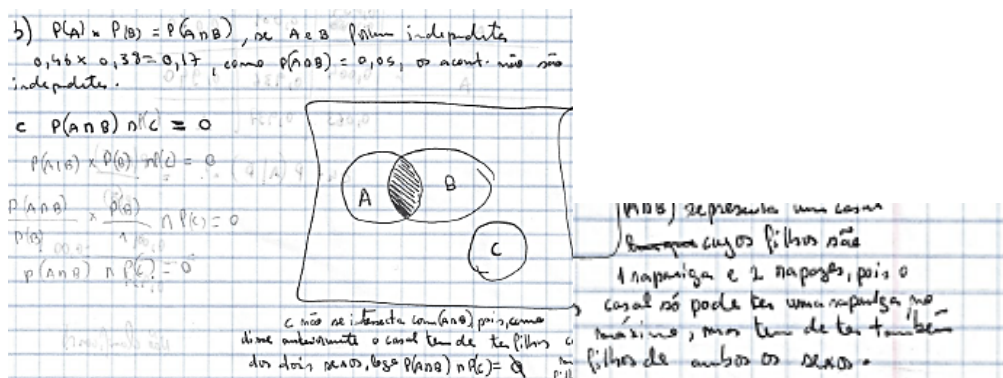 b) P(A) x P(B) = P(A∩B), se A e B forem independentes
0,46 x 0,38 = 0,17, como P(A∩B) = 0,05, os acont. não são
independentes.
c P(A∩B) ∩ P(C) = 0
P(A|B) x P(B) ∩ P(C) = 0
P(A∩B)/P(B) x P(B)/1 ∩ P(C) = 0
P(A∩B) ∩ P(C) = 0
A B
C
C não se intersecta com (A∩B) pois, como
disse anteriormente o casal tem de ter filhos
dos dois sexos, logo P(A∩B) ∩ P(C) = 0
(A∩B) representa um casal
cujos filhos são
1 rapariga e 2 rapazes, pois o
casal só pode ter uma rapariga no
máximo, mas tem de ter também
filhos de ambos os sexos.